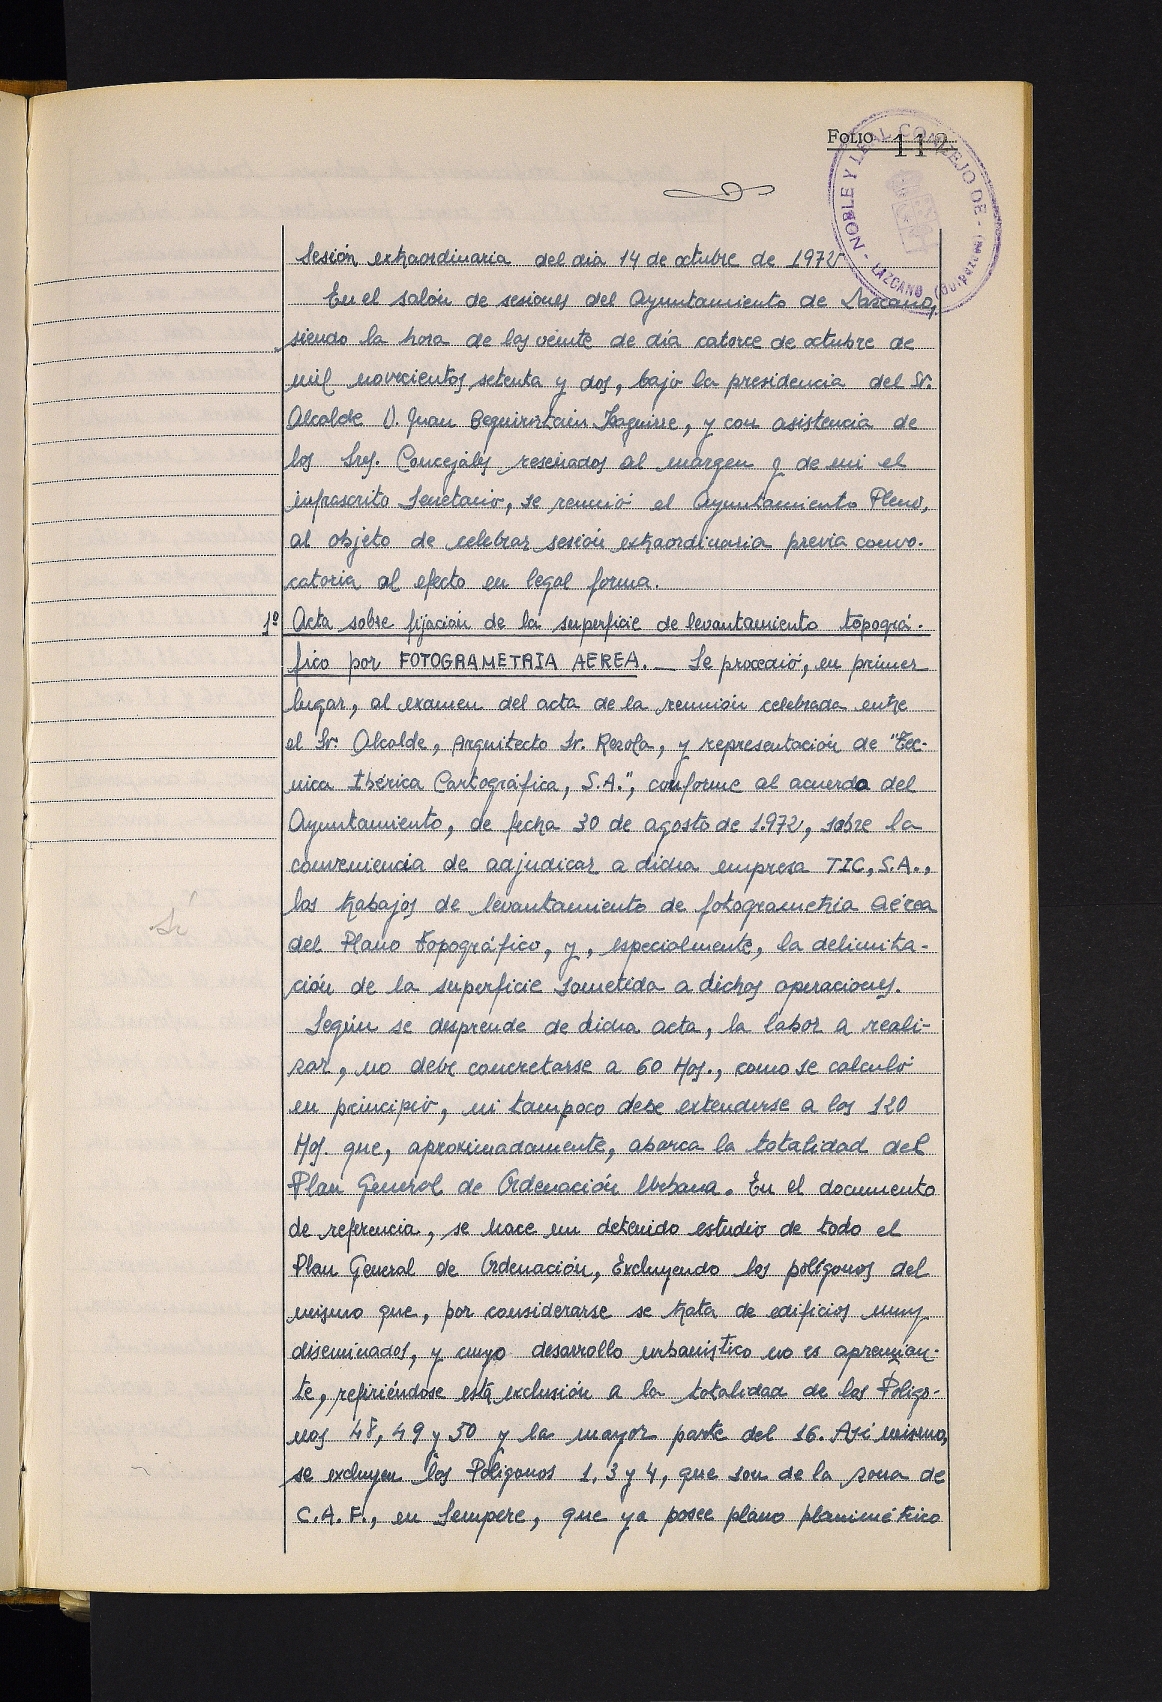 FOLIO 112
NOBLE Y LEAL CONCEJO DE - LAZCANO (Guipúzcoa)
Sesión extraordinaria del día 14 de octubre de 1972
En el salón de sesiones del Ayuntamiento de Lazcano,
siendo la hora de las veinte de día catorce de octubre de
mil novecientos setenta y dos, bajo la presidencia del Sr.
Alcalde D. Juan Beguiristain Izaguirre, y con asistencia de
los Sres. Concejales reseñados al margen y de mi el
infrascrito Secretario, se reunió el Ayuntamiento Pleno,
al objeto de celebrar sesión extraordinaria previa convo-
catoria al efecto en legal forma.
1º Acta sobre fijación de la superficie de levantamiento topográ-
fico por FOTOGRAMETRIA AEREA. — Se procedió, en primer
lugar, al examen del acta de la reunión celebrada entre
el Sr. Alcalde, Arquitecto Sr. Rezola, y representación de "Téc-
nica Ibérica Cartográfica, S.A.", conforme al acuerdo del
Ayuntamiento, de fecha 30 de agosto de 1.972, sobre la
conveniencia de adjudicar a dicha empresa TIC, S.A.,
los trabajos de levantamiento de fotogrametria aérea
del Plano topográfico, y, especialmente, la delimita-
ción de la superficie sometida a dichas operaciones.
Según se desprende de dicha acta, la labor a reali-
zar, no debe concretarse a 60 Has., como se calculó
en principio, ni tampoco debe extenderse a los 120
Has. que, aproximadamente, abarca la totalidad del
Plan General de Ordenación Urbana. En el documento
de referencia, se hace un detenido estudio de todo el
Plan General de Ordenación, Excluyendo los polígonos del
mismo que, por considerarse se trata de edificios muy
diseminados, y cuyo desarrollo urbanístico no es apremian-
te, refiriéndose esta exclusión a la totalidad de los Polígo-
nos 48, 49 y 50 y la mayor parte del 16. Así mismo,
se excluyen los Polígonos 1, 3 y 4, que son de la zona de
C.A.F., en Sempere, que ya posee plano planimétrico